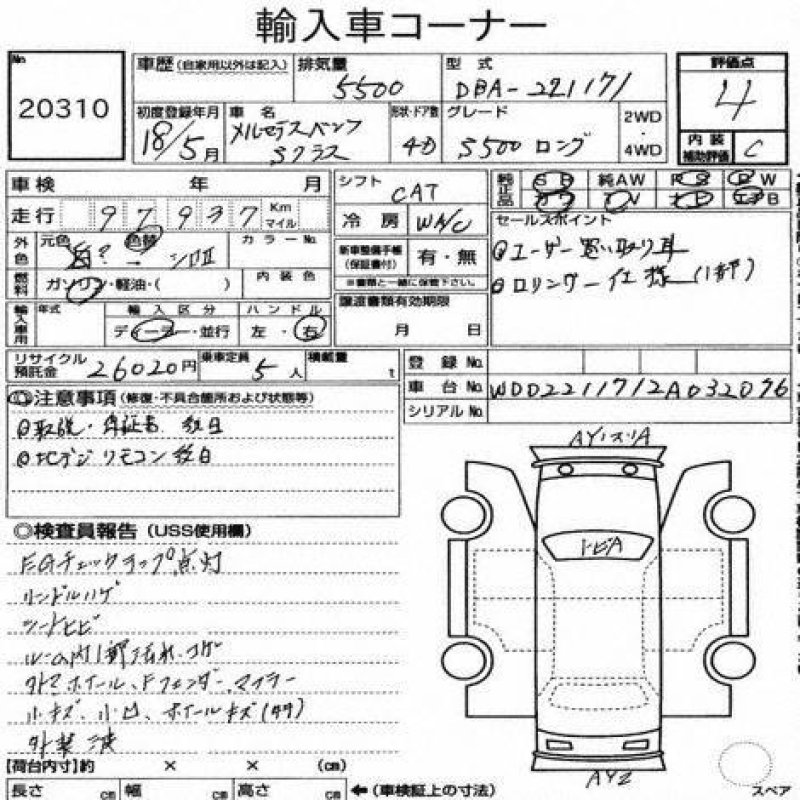 輸入車コーナー
No.
20310
車歴 (自家用以外は記入)
排気量
5500
型式
DBA-221171
評価点
4
初度登録年月
18/5月
車名
メルセデスベンツ
Sクラス
形状・ドア数
4D
グレード
S500 ロング
2WD
・
4WD
内装
補助評価
C
車検 年 月
走行 97937 Km
マイル
シフト
CAT
冷房
WA/C
純正品
純AW
セールスポイント
ユーザー買い取り車
ロリンザー仕様(1部)
外色
元色
色替
白? → シロⅡ
カラーNo.
燃料
ガソリン・軽油・( )
内装色
新車整備手帳
(保証書付)
有・無
※書類と一緒に保管下さい。
輸入車用
年式
輸入区分
ディーラー・並行
ハンドル
左・右
譲渡書類有効期限
月 日
リサイクル
預託金
26020円
乗車定員
5人
積載量
t
登録No.
車台No.
WDD2211712A032096
シリアルNo.
◎注意事項 (修復・不具合箇所および状態等)
取説・保証書 後日
リモコン 後日
◎検査員報告 (USS使用欄)
EGチェックランプ点灯
ハンドルハゲ
シートヒビ
ルーム内1部汚れ、コゲ
外マホイール、Fフェンダー、マフラー
小キズ、小凹、ホイールキズ
AY1
トビA
AY2
【荷台内寸】約 × × (cm)
長さ cm 幅 cm 高さ cm ←(車検証上の寸法)
スペア